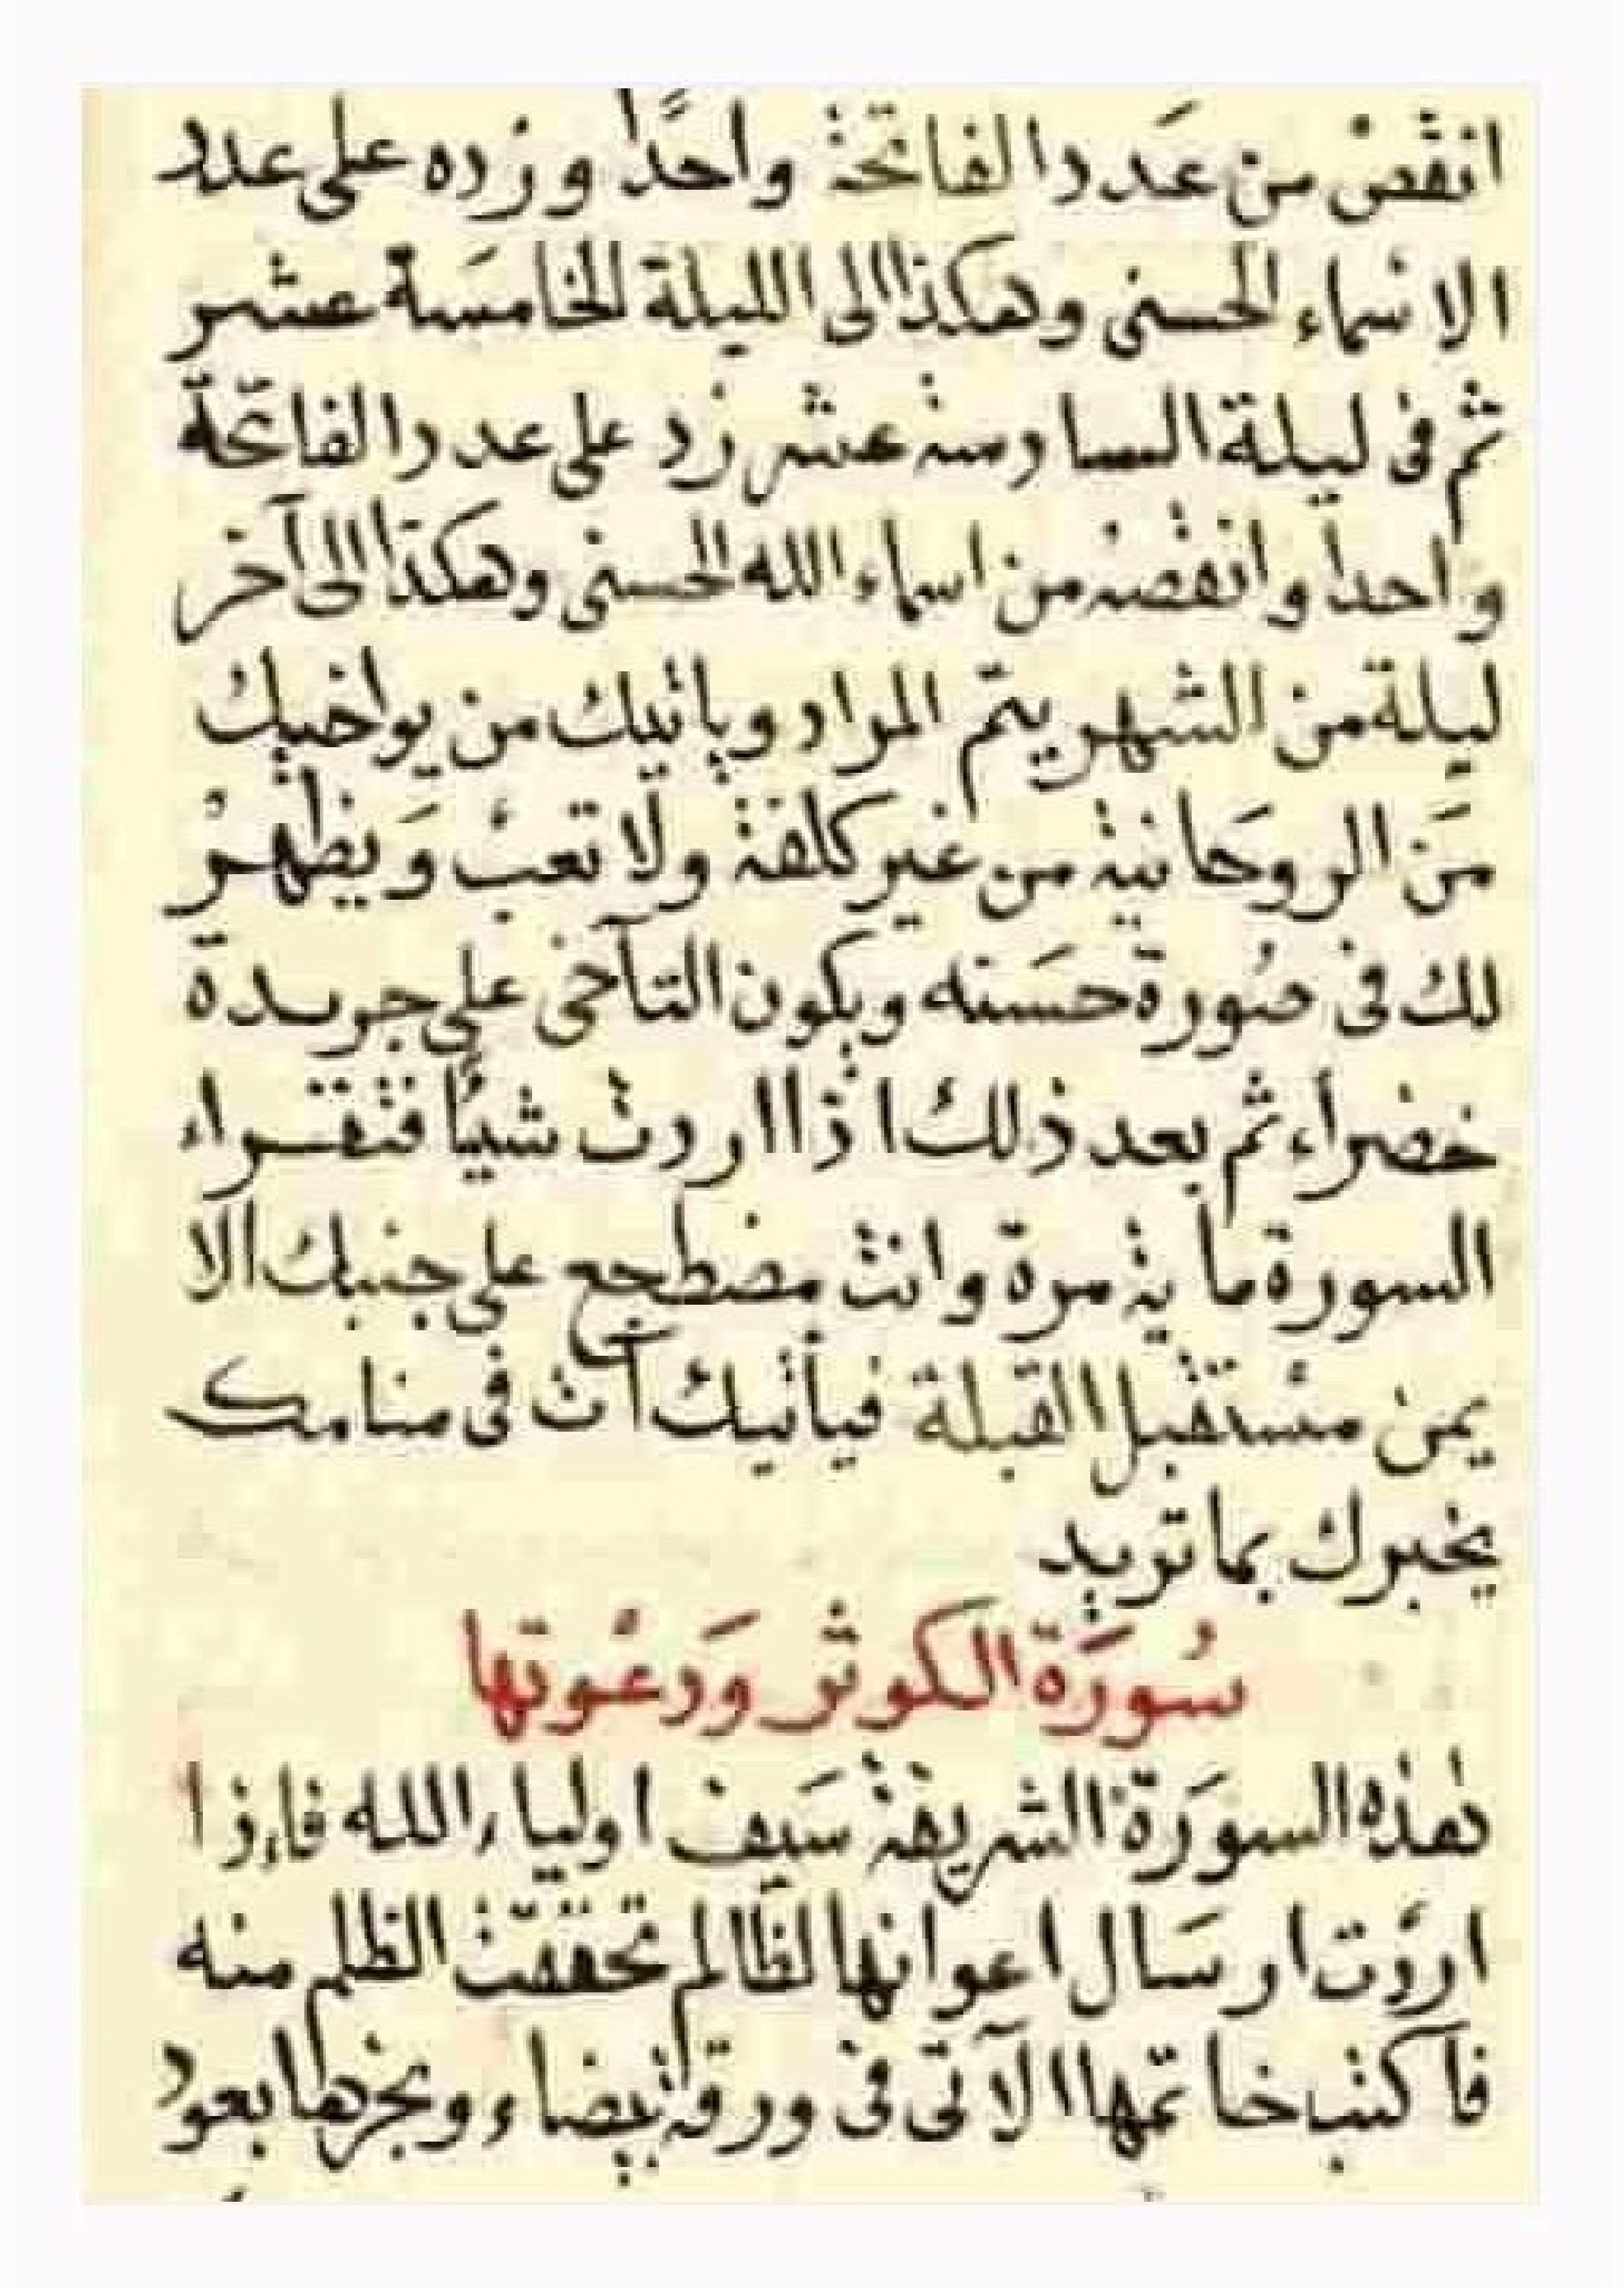 انقصْ من عَدد الفاتحة واحدًا وزده على عدد
الاسْماء الحسنى وهكذا الى الليلة الخامسَة عشر
ثم فى ليلة السادسة عشر زد على عدد الفاتحة
واحدا وانقصْه من اسماء الله الحسنى وهكذا الى آخر
ليلة من الشهر يتمّ المراد وياتيك من يواخيك
مَن الروحَانية من غير كلفة ولا تعبْ وَيظهرُ
لك فى صُورة حسَنه ويكون التآخى على جريدة
خضراء ثم بعد ذلك اذا اردت شيئا فتقراء
السورة ماية مرة وانت مضطجع على جنبك الا
يمن مسْتقبل القبلة فيأتيك آت فى منامك
يخبرك بما تريد
سُورَة الكوثر وَدعْوتها
هذه السورَة الشريفة سَيف اولياء الله فاءذا
اردْت ارسَال اعوانها لظالم تحققتْ الظلم منه
فآكتب خاتمها الآتى فى ورقة بيضاء وبخرها بعود